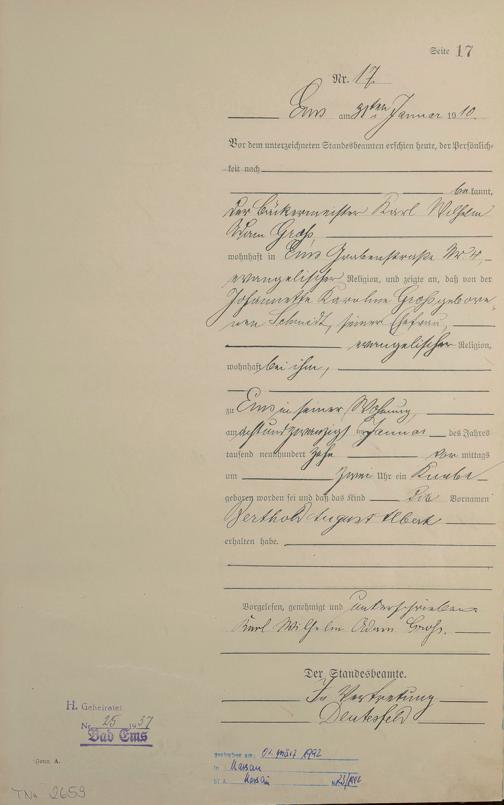 Seite 17
Nr. 17
Ems am 31ten Januar 1910.
Vor dem unterzeichneten Standesbeamten erschien heute, der Persönlich-
keit nach
bekannt,
der Bäckermeister Karl Wilhelm
Adam Groß,
wohnhaft in Ems Grabenstraße Nr. 4,
evangelischer Religion, und zeigte an, daß von der
Johannette Karoline Groß gebore-
nen Schmidt, seiner Ehefrau,
evangelischer Religion,
wohnhaft bei ihm,
zu Ems in seiner Wohnung
am achtundzwanzigst Januar des Jahres
tausend neunhundert zehn vor mittags
um zwei Uhr ein Knabe
geboren worden sei und daß das Kind die Vornamen
Berthold August Albert
erhalten habe.
Vorgelesen, genehmigt und unterschrieben
Karl Wilhelm Adam Groß.
Der Standesbeamte.
In Vertretung
H. Geheiratet
Nr. 25 1937
Bad Ems
Form. A.
gestorben am: 01. März 1992
in Nassau
St. A. Nassau Nr. 23/1992
TNo 2659